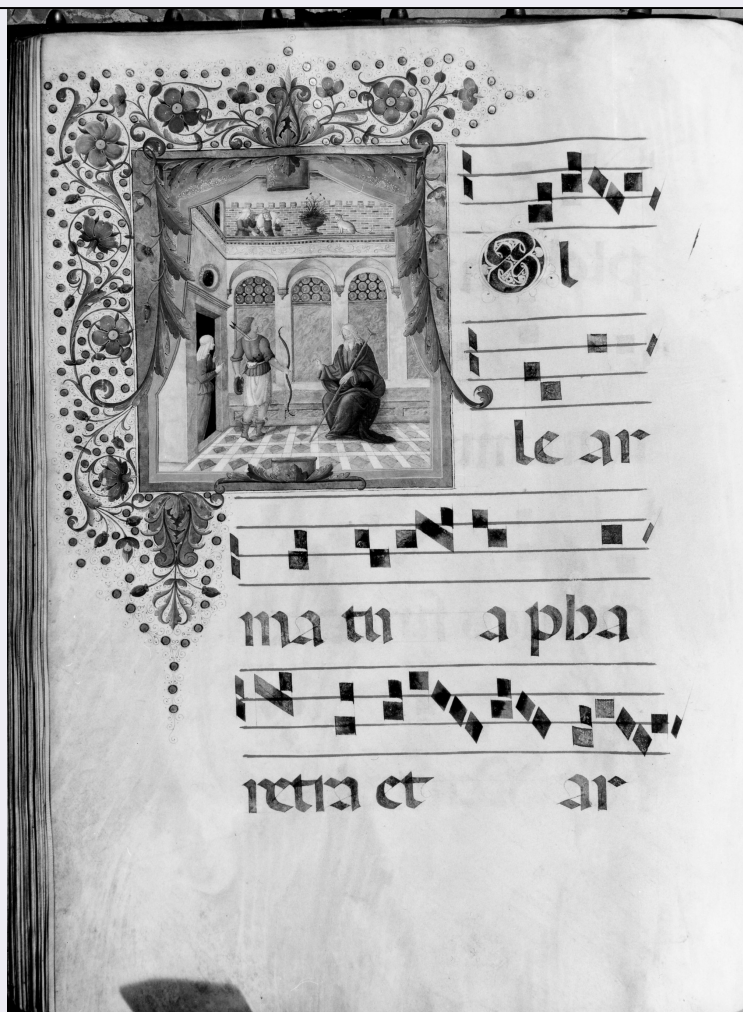 Ol
le ar
ma tu a pha
retra et ar